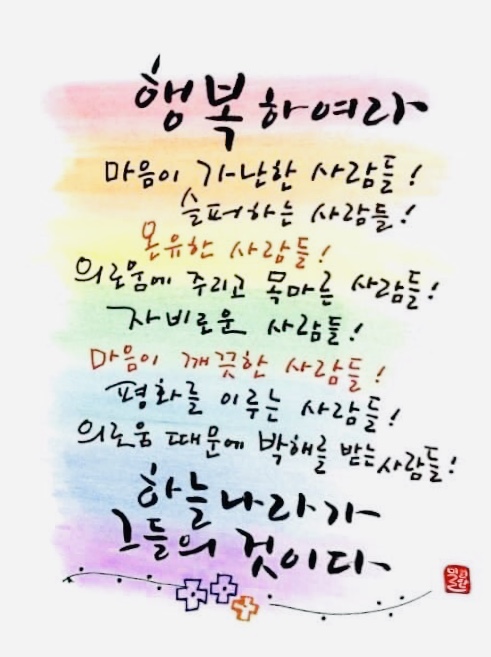 행복하여라
마음이 가난한 사람들!
슬퍼하는 사람들!
온유한 사람들!
의로움에 주리고 목마른 사람들!
자비로운 사람들!
마음이 깨끗한 사람들!
평화를 이루는 사람들!
의로움 때문에 박해를 받는 사람들!
하늘나라가
그들의 것이다